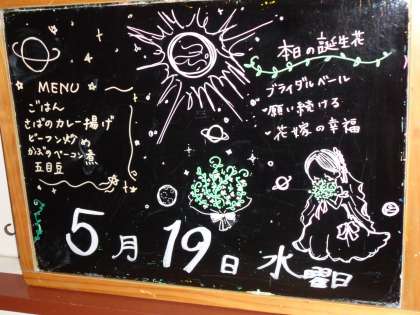 MENU
ごはん
さばのカレー揚げ
ビーフン炒め
かぶのベーコン煮
五目豆
本日の誕生花
ブライダルベール
願い続ける
花嫁の幸福
5月19日水曜日